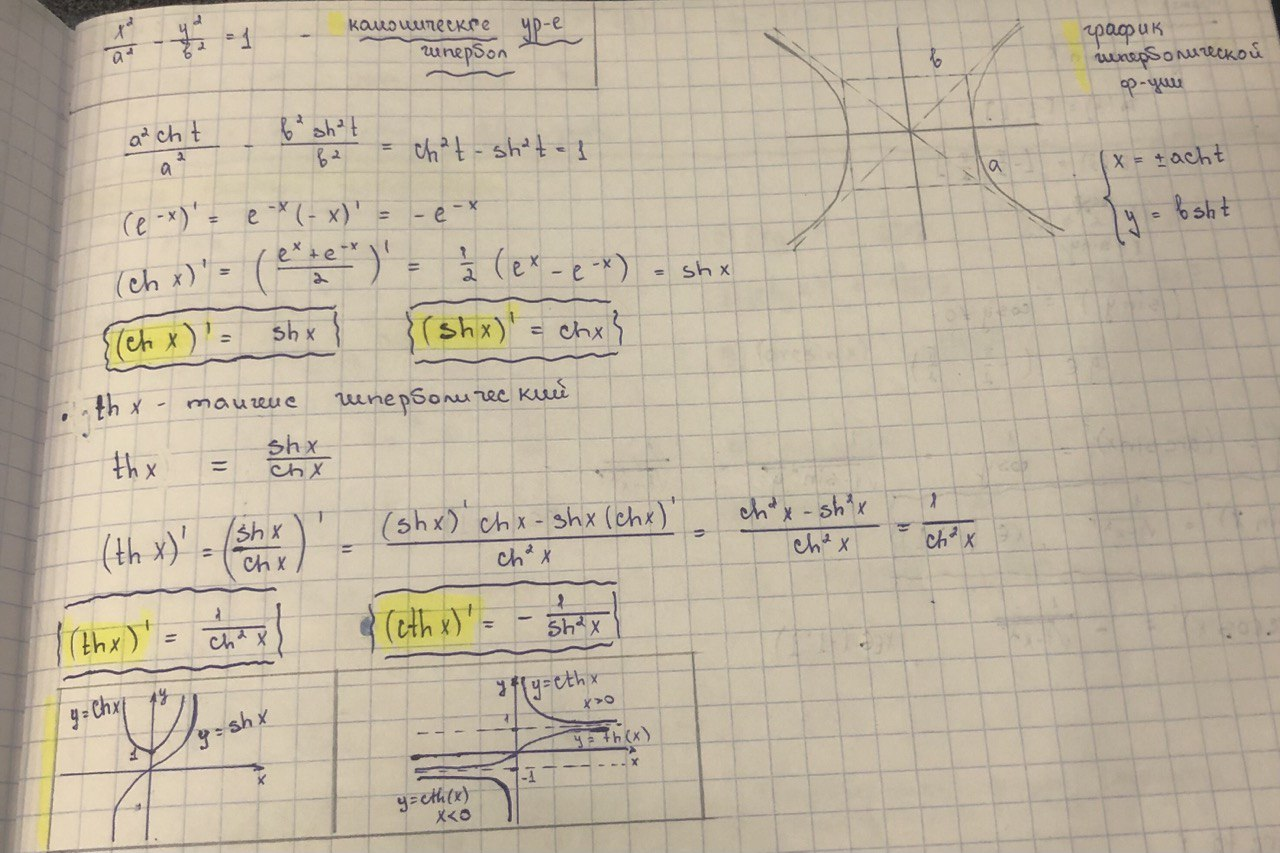 x²/a² - y²/b² = 1 - каноническое ур-е
гипербол
график
гиперболической
ф-ции
b
a
{ x = ± a ch t
y = b sh t
a² ch t / a² - b² sh² t / b² = ch² t - sh² t = 1
(e^-x)' = e^-x (-x)' = - e^-x
(ch x)' = ((e^x + e^-x)/2)' = 1/2 (e^x - e^-x) = sh x
(ch x)' = sh x
(sh x)' = ch x
• th x - тангенс гиперболический
th x = sh x / ch x
(th x)' = (sh x / ch x)' = ((sh x)' ch x - sh x (ch x)') / ch² x = (ch² x - sh² x) / ch² x = 1 / ch² x
(th x)' = 1 / ch² x
(cth x)' = - 1 / sh² x
y = ch x
y
y = sh x
1
x
y
y = cth x
x > 0
1
y = th(x)
x
-1
y = cth(x)
x < 0